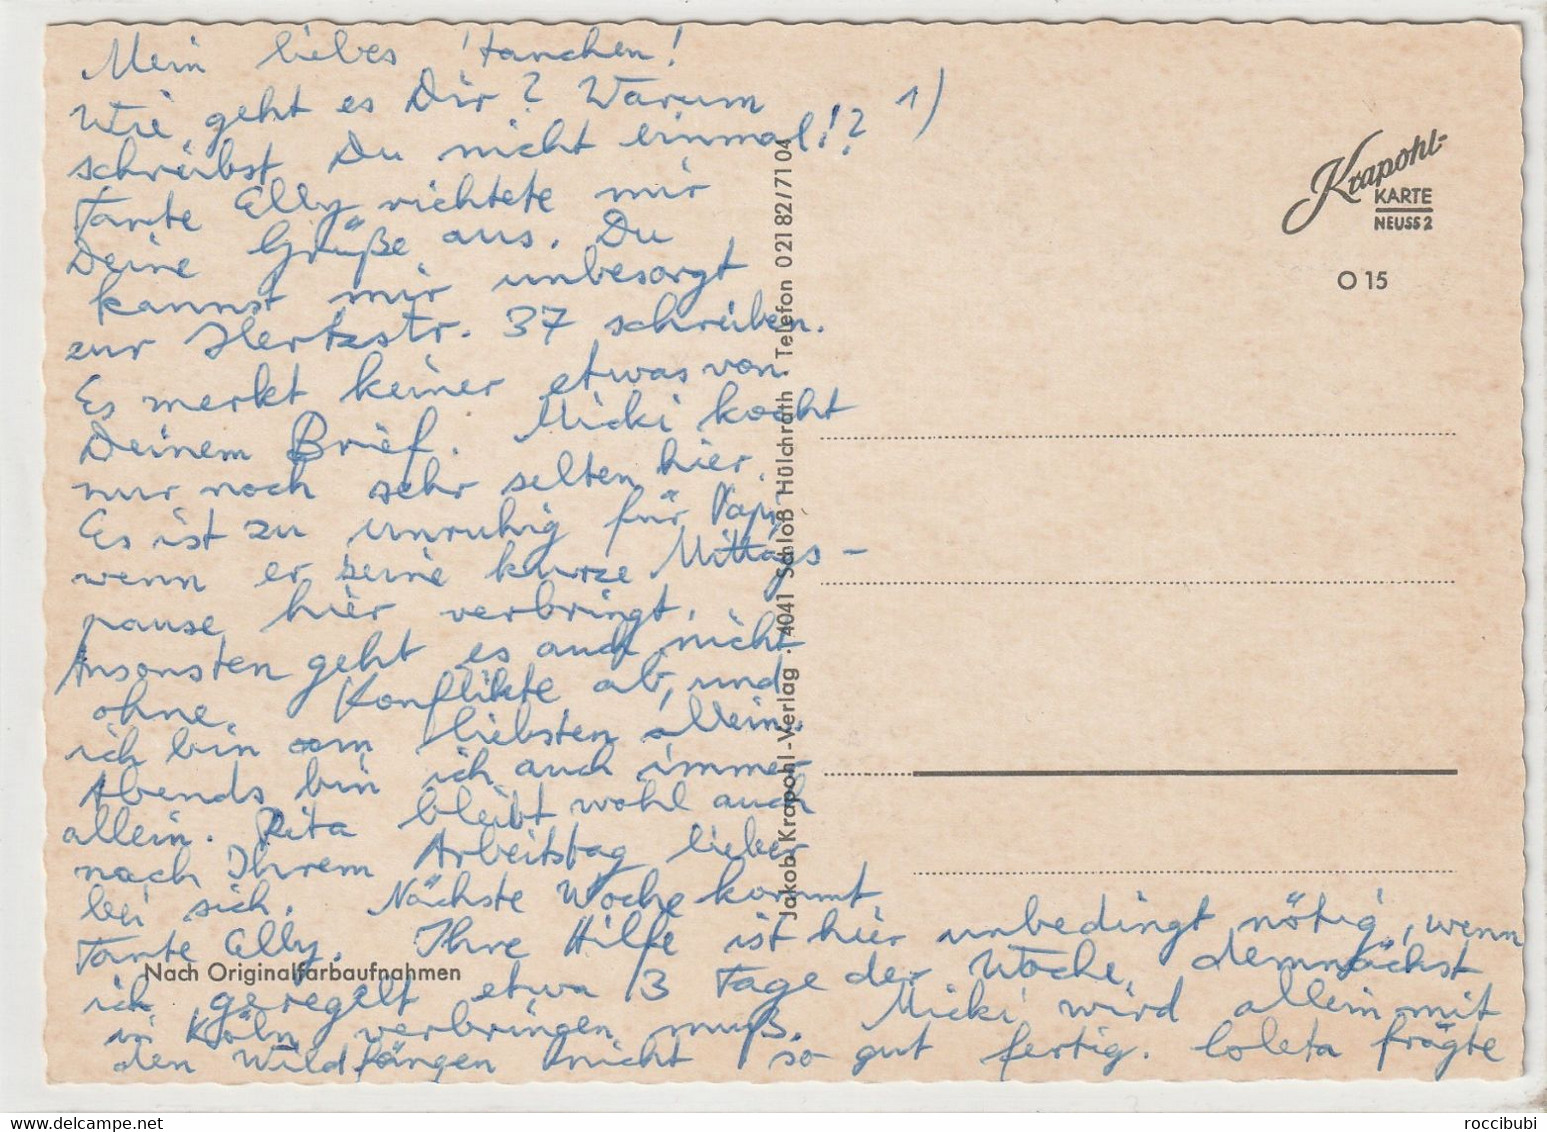 Mein liebes Hanchen!
Wie geht es Dir? Warum
schreibst Du nicht einmal!?
1)
Tante Elly richtete mir
Deine Grüße aus. Du
kannst mir unbesorgt
zur Hertzstr. 37 schreiben.
Es merkt keiner etwas von
Deinem Brief. Micki kocht
nur noch sehr selten hier.
Es ist zu unruhig für Papi,
wenn er seine kurze Mittags-
pause hier verbringt.
Ansonsten geht es auch nicht
ohne Konflikte ab, und
ich bin am liebsten allein.
Abends bin ich auch immer
allein. Rita bleibt wohl auch
nach Ihrem Arbeitstag lieber
bei sich. Nächste Woche kommt
Tante Elly. Ihre Hilfe ist hier unbedingt nötig, wenn
ich geregelt etwa 3 Tage der Woche demnächst
in Köln verbringen muß. Micki wird allein mit
den Wildfängen nicht so gut fertig. Loleta frägte
Nach Originalfarbaufnahmen
Jakob Krapohl-Verlag · 4041 Schloß Hülchrath · Telefon 02182/7104
Krapohl-
KARTE
NEUSS 2
O 15
roccibubi